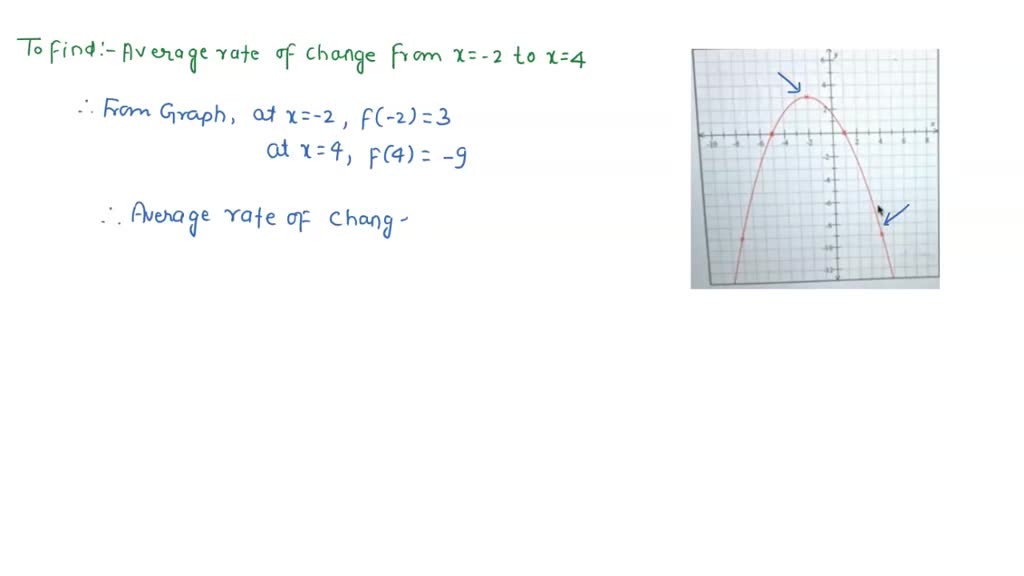 To find:- Average rate of change from x=-2 to x=4
∴ From Graph, at x=-2, f(-2)=3
at x=4, f(4) = -9
∴ Average rate of chang-
6 y
4
2
x
-10 -8 -6 -4 -2 2 4 6 8
-2
-4
-6
-8
-10
-12